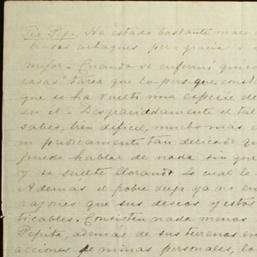 Tío Pepe. Ha estado bastante malo
varios achaques, pero gracias a
mejor. Cuando se enfermó quiso
casas. Tarea que lo persigue const
que se ha vuelto una especie de
en él. Desgraciadamente el tal
sabes, bien difícil, mucho mas e
un predicamento tan delicado q
puede hablar de nada sin que
y se suelte llorando lo cual le
Además el pobre viejo ya no en
cajones que sus deseos y estos
ticables. Consisten nada menos
Pepita, además de sus terrenos en
acciones de minas personales, la